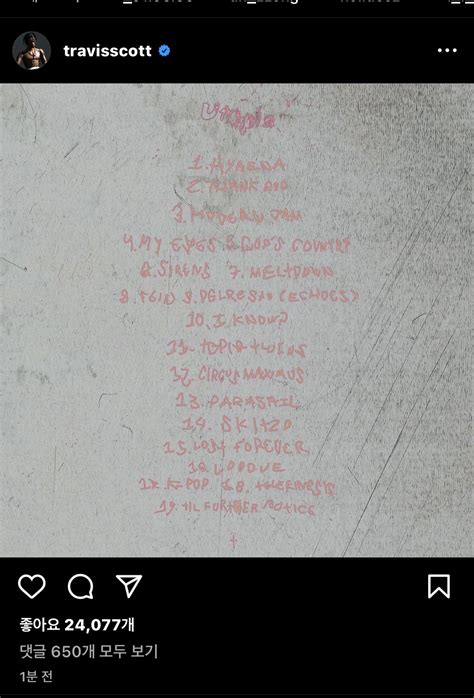 travisscott
Utopia
1. HYAENA
2. THANK GOD
3. MODERN JAM
4. MY EYES 5. GOD'S COUNTRY
6. SIRENS 7. MELTDOWN
8. FEIN 9. DELRESTO (ECHOES)
10. I KNOW?
11. TOPIA TWINS
12. CIRCUS MAXIMUS
13. PARASAIL
14. SKITZO
15. LOST FOREVER
16. LOOOVE
17. K-POP 18. TELEKINESIS
19. TIL FURTHER NOTICE
좋아요 24,077개
댓글 650개 모두 보기
1분 전